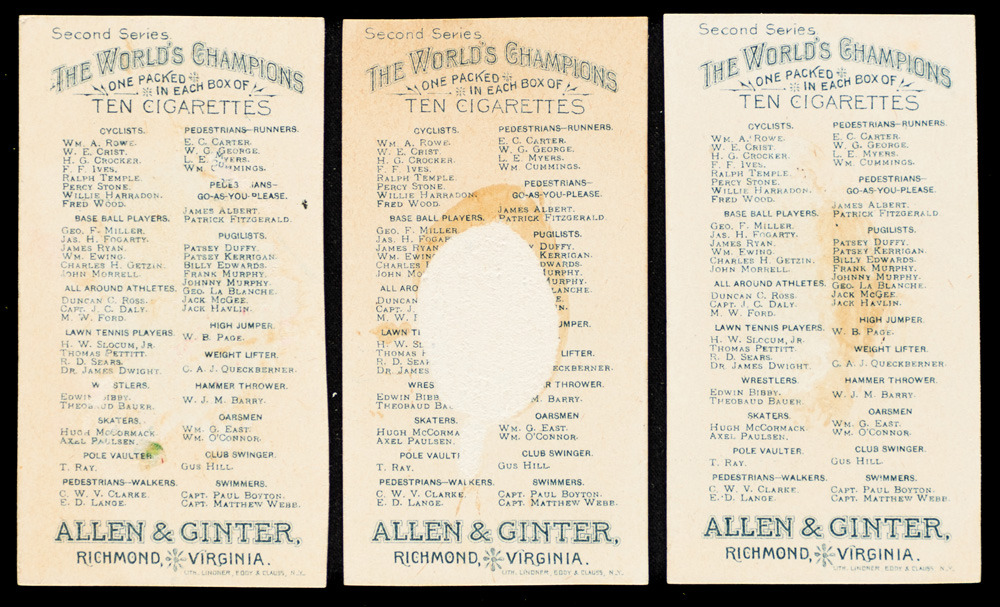 Second Series
THE WORLD'S CHAMPIONS
ONE PACKED
IN EACH BOX OF
TEN CIGARETTES
CYCLISTS.
WM. A. ROWE.
W. E. CRIST.
H. G. CROCKER.
F. F. IVES.
RALPH TEMPLE.
PERCY STONE.
WILLIE HARRADON.
FRED WOOD.
BASE BALL PLAYERS.
GEO. F. MILLER.
JAS. H. FOGARTY.
JAMES RYAN.
WM. EWING.
CHARLES H. GETZIN.
JOHN MORRELL.
ALL AROUND ATHLETES.
DUNCAN C. ROSS.
CAPT. J. C. DALY.
M. W. FORD.
LAWN TENNIS PLAYERS.
H. W. SLOCUM, JR.
THOMAS PETTITT.
R. D. SEARS.
DR. JAMES DWIGHT.
W STLERS.
EDWIN BIBBY.
THEOBAUD BAUER.
SKATERS.
HUGH MCCORMACK.
AXEL PAULSEN.
POLE VAULTER.
T. RAY.
PEDESTRIANS–WALKERS.
C. W. V. CLARKE.
E. D. LANGE.
PEDESTRIANS–RUNNERS.
E. C. CARTER.
W. G. GEORGE.
L. E. MYERS.
WM CUMMINGS.
PEDES IANS–
GO-AS-YOU-PLEASE.
JAMES ALBERT.
PATRICK FITZGERALD.
PUGILISTS.
PATSEY DUFFY.
PATSEY KERRIGAN.
BILLY EDWARDS.
FRANK MURPHY.
JOHNNY MURPHY.
GEO. LA BLANCHE.
JACK MCGEE.
JACK HAVLIN.
HIGH JUMPER.
W. B. PAGE.
WEIGHT LIFTER.
C. A. J. QUECKBERNER.
HAMMER THROWER.
W. J. M. BARRY.
OARSMEN
WM. G. EAST.
WM. O'CONNOR.
CLUB SWINGER.
GUS HILL.
SWIMMERS.
CAPT. PAUL BOYTON.
CAPT. MATTHEW WEBB.
ALLEN & GINTER,
RICHMOND, VIRGINIA.
LITH. LINDNER, EDDY & CLAUSS, N.Y.
Second Series
THE WORLD'S CHAMPIONS
ONE PACKED
IN EACH BOX OF
TEN CIGARETTES
CYCLISTS.
WM. A. ROWE.
W. E. CRIST.
H. G. CROCKER.
F. F. IVES.
RALPH TEMPLE.
PERCY STONE.
WILLIE HARRADON.
FRED WOOD.
BASE BALL PLAYERS.
GEO. F. MILLER.
JAS. H. FOGAR
JAMES RYAN
WM. EWIN
CHARLES
JOHN MO
ALL ARO
DUNCAN
CAPT. J.
M. W. F
LAWN T
H. W. S
THOMAS
R. D. SEA
DR. JAMES
WRES
EDWIN BIBB
THEOBAUD BA
SKATERS.
HUGH MCCORMA
AXEL PAULSEN.
POLE VAULTE
T. RAY.
PEDESTRIANS–WALKERS.
C. W. V. CLARKE.
E. D. LANGE.
PEDESTRIANS–RUNNERS.
E. C. CARTER.
W. G. GEORGE.
L. E. MYERS.
WM. CUMMINGS.
PEDESTRIANS–
GO-AS-YOU-PLEASE.
JAMES ALBERT.
PATRICK FITZGERALD
PUGILISTS.
Y DUFFY.
KERRIGAN.
DWARDS.
MURPHY.
MURPHY.
LANCHE.
UMPER.
IFTER.
ECKBERNER.
R THROWER.
M. BARRY.
OARSMEN
WM. G. EAST.
WM. O'CONNOR.
CLUB SWINGER.
GUS HILL.
SWIMMERS.
CAPT. PAUL BOYTON.
CAPT. MATTHEW WEBB.
ALLEN & GINTER,
RICHMOND, VIRGINIA.
LITH. LINDNER, EDDY & CLAUSS, N.Y.
Second Series
THE WORLD'S CHAMPIONS
ONE PACKED
IN EACH BOX OF
TEN CIGARETTES
CYCLISTS.
WM. A. ROWE.
W. E. CRIST.
H. G. CROCKER.
F. F. IVES.
RALPH TEMPLE.
PERCY STONE.
WILLIE HARRADON.
FRED WOOD.
BASE BALL PLAYERS.
GEO. F. MILLER.
JAS. H. FOGARTY.
JAMES RYAN.
WM. EWING.
CHARLES H. GETZIN.
JOHN MORRELL.
ALL AROUND ATHLETES.
DUNCAN C. ROSS.
CAPT. J. C. DALY.
M. W. FORD.
LAWN TENNIS PLAYERS.
H. W. SLOCUM, JR.
THOMAS PETTITT.
R. D. SEARS.
DR. JAMES DWIGHT.
WRESTLERS.
EDWIN BIBBY.
THEOBAUD BAUER.
SKATERS.
HUGH MCCORMACK.
AXEL PAULSEN.
POLE VAULTER.
T. RAY.
PEDESTRIANS–WALKERS.
C. W. V. CLARKE.
E. D. LANGE.
PEDESTRIANS–RUNNERS.
E. C. CARTER.
W. G. GEORGE.
L. E. MYERS.
WM. CUMMINGS.
PEDESTRIANS–
GO-AS-YOU-PLEASE.
JAMES ALBERT.
PATRICK FITZGERALD
PUGILISTS.
PATSEY DUFFY.
PATSEY KERRIGAN.
BILLY EDWARDS.
FRANK MURPHY.
JOHNNY MURPHY.
GEO. LA BLANCHE.
JACK MCGEE.
JACK HAVLIN.
HIGH JUMPER.
W. B. PAGE.
WEIGHT LIFTER.
C. A. J. QUECKBERNER.
HAMMER THROWER.
W. J. M. BARRY.
OARSMEN
WM. G. EAST.
WM. O'CONNOR.
CLUB SWINGER.
GUS HILL.
SWIMMERS.
CAPT. PAUL BOYTON.
CAPT. MATTHEW WEBB.
ALLEN & GINTER,
RICHMOND, VIRGINIA.
LITH. LINDNER, EDDY & CLAUSS, N.Y.